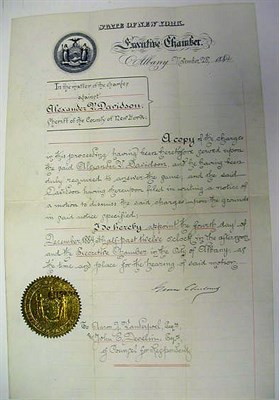 STATE OF NEW YORK.
Executive Chamber,
Albany November 28 1884
In the matter of the charges
against
Alexander V. Davidson,
Sheriff of the County of New York.
A copy of the charges
in this proceeding having been heretofore served upon
the said Alexander V. Davidson, and he having been
duly required to answer the same, and the said
Davidson having thereupon filed in writing a notice of
a motion to dismiss the said charges upon the grounds
in said notice specified.
I do hereby appoint the fourth day of
December 1884 at half past twelve o'clock in the afternoon
and the Executive Chamber in the City of Albany, as
the time and place for the hearing of said motion.
Grover Cleveland
To Aaron J. Vanderpoel Esq.
John C. Develin, Esq.
of Counsel for Respondent